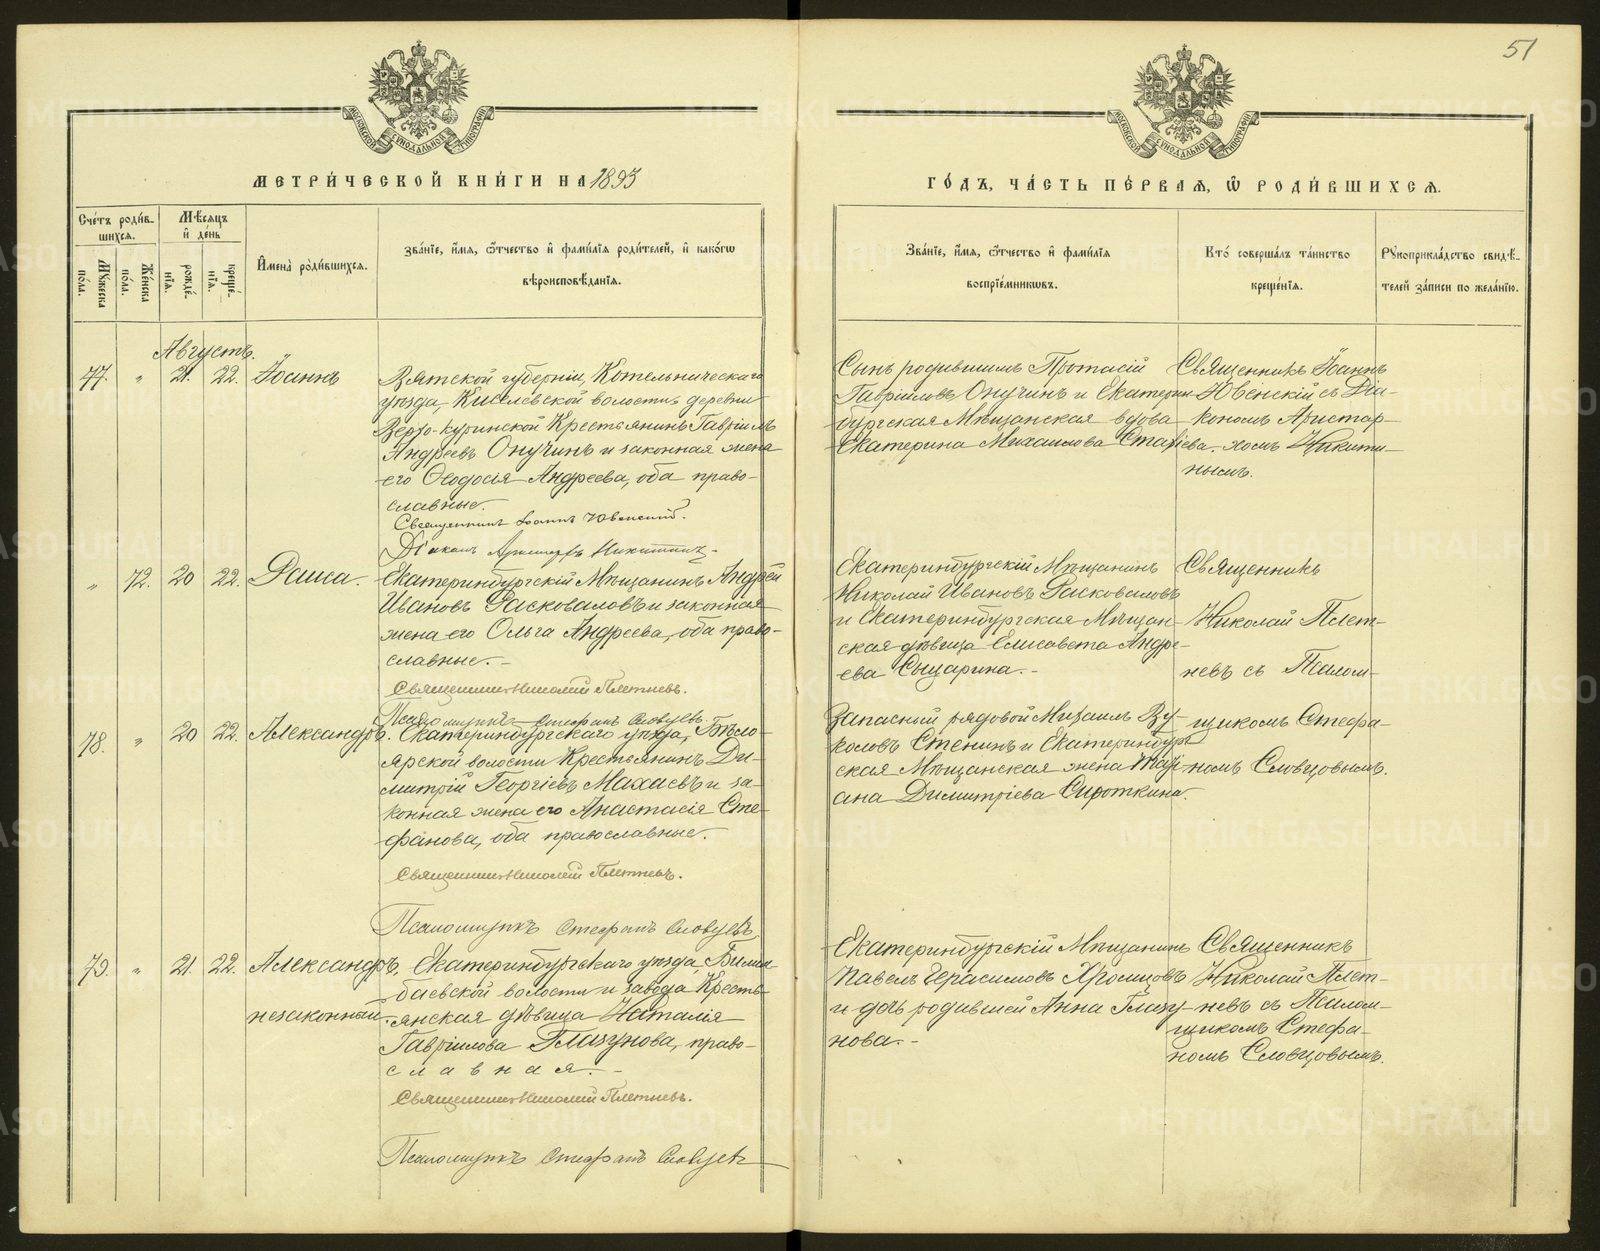 51
МОСКОВСКОЙ СѴНОДАЛЬНОЙ ТИПОГРАФІИ
МОСКОВСКОЙ СѴНОДАЛЬНОЙ ТИПОГРАФІИ
МЕТРИ́ЧЕСКОЙ КНИ́ГИ НА 1893
ГО́ДЪ, ЧА́СТЬ ПЕ́РВАЯ, Ѿ РОДИ́ВШИХСЯ.
Сче́тъ роди́в-
шихся.
Му́жеска по́ла.
Же́нска по́ла.
Мѣ́сяцъ
и҆ де́нь
рожде́-
нїя.
креще́-
нїя.
И҆мена̀ ро́ди́вшихся.
Зва́нїе, и҆́мя, ѻ҆́тчество и҆ фами́лїя роди́телей, и҆ како́гѡ
вѣроисповѣ́данїя.
Зва́нїе, и҆́мя, ѻ҆́тчество и҆ фами́лїя
воспрїе́мниковъ.
Кто́ соверша́лъ та́инство
креще́нїя.
Рꙋкоприкла́дство свидѣ́-
телей за́писи по жела́нїю.
Августъ.
77. " 21. 22. Іоаннъ
Вятской губерніи, Котельническаго
уѣзда, Киселевской волости деревни
Верхо-куринской Крестьянинъ Гавріилъ
Андреевъ Онучинъ и законная жена
его Ѳеодосія Андреева, оба право-
славные.
Священникъ Іоаннъ Ювенскій.
Діаконъ Аристархъ Никитинъ.
Сынъ родившимъ Протасій
Гавріиловъ Онучинъ и Екатерин-
бургская Мѣщанская вдова
Екатерина Михаилова Стахіева.
Священникъ Іоаннъ
Ювенскій съ Діа-
кономъ Аристар-
хомъ Никити-
нымъ.
" 72. 20 22. Раиса.
Екатеринбургскій Мѣщанинъ Андрей
Ивановъ Расковаловъ и законная
жена его Ольга Андреева, оба право-
славные.-
Священникъ Николай Плетневъ.
Псаломщикъ Стефанъ Словцевъ.
Екатеринбургскій Мѣщанинъ
Николай Ивановъ Расковаловъ
и Екатеринбургская Мѣщан-
ская дѣвица Елисавета Андре-
ева Сыцарина.-
Священникъ
Николай Плет-
невъ съ Псалом-
щикомъ Стефа-
номъ Словцовымъ.
78. " 20 22. Александръ.
Екатеринбургскаго уѣзда, Бѣло-
ярской волости Крестьянинъ Ди-
митрій Георгіевъ Махаевъ и за-
конная жена его Анастасія Сте-
фанова, оба православные.
Священникъ Николай Плетневъ.
Псаломщикъ Стефанъ Словцевъ.
Запасный рядовой Михаилъ Ву-
коловъ Стенинъ и Екатеринбург-
ская Мѣщанская жена Марі-
ана Димитріева Сироткина.
79. " 21. 22. Александръ.
незаконный.
Екатеринбургскаго уѣзда, Билим-
баевской волости и завода, Кресть-
янская дѣвица Наталія
Гавріилова Глазунова, право-
славная.-
Священникъ Николай Плетневъ.
Псаломщикъ Стефанъ Словцевъ
Екатеринбургскій Мѣщанинъ
Павелъ Герасимовъ Хромцовъ
и дочь родившей Анна Глазу-
нова.-
Священникъ
Николай Плет-
невъ съ Псалом-
щикомъ Стефа-
номъ Словцовымъ.
METRIKI.GASO-URAL.RU